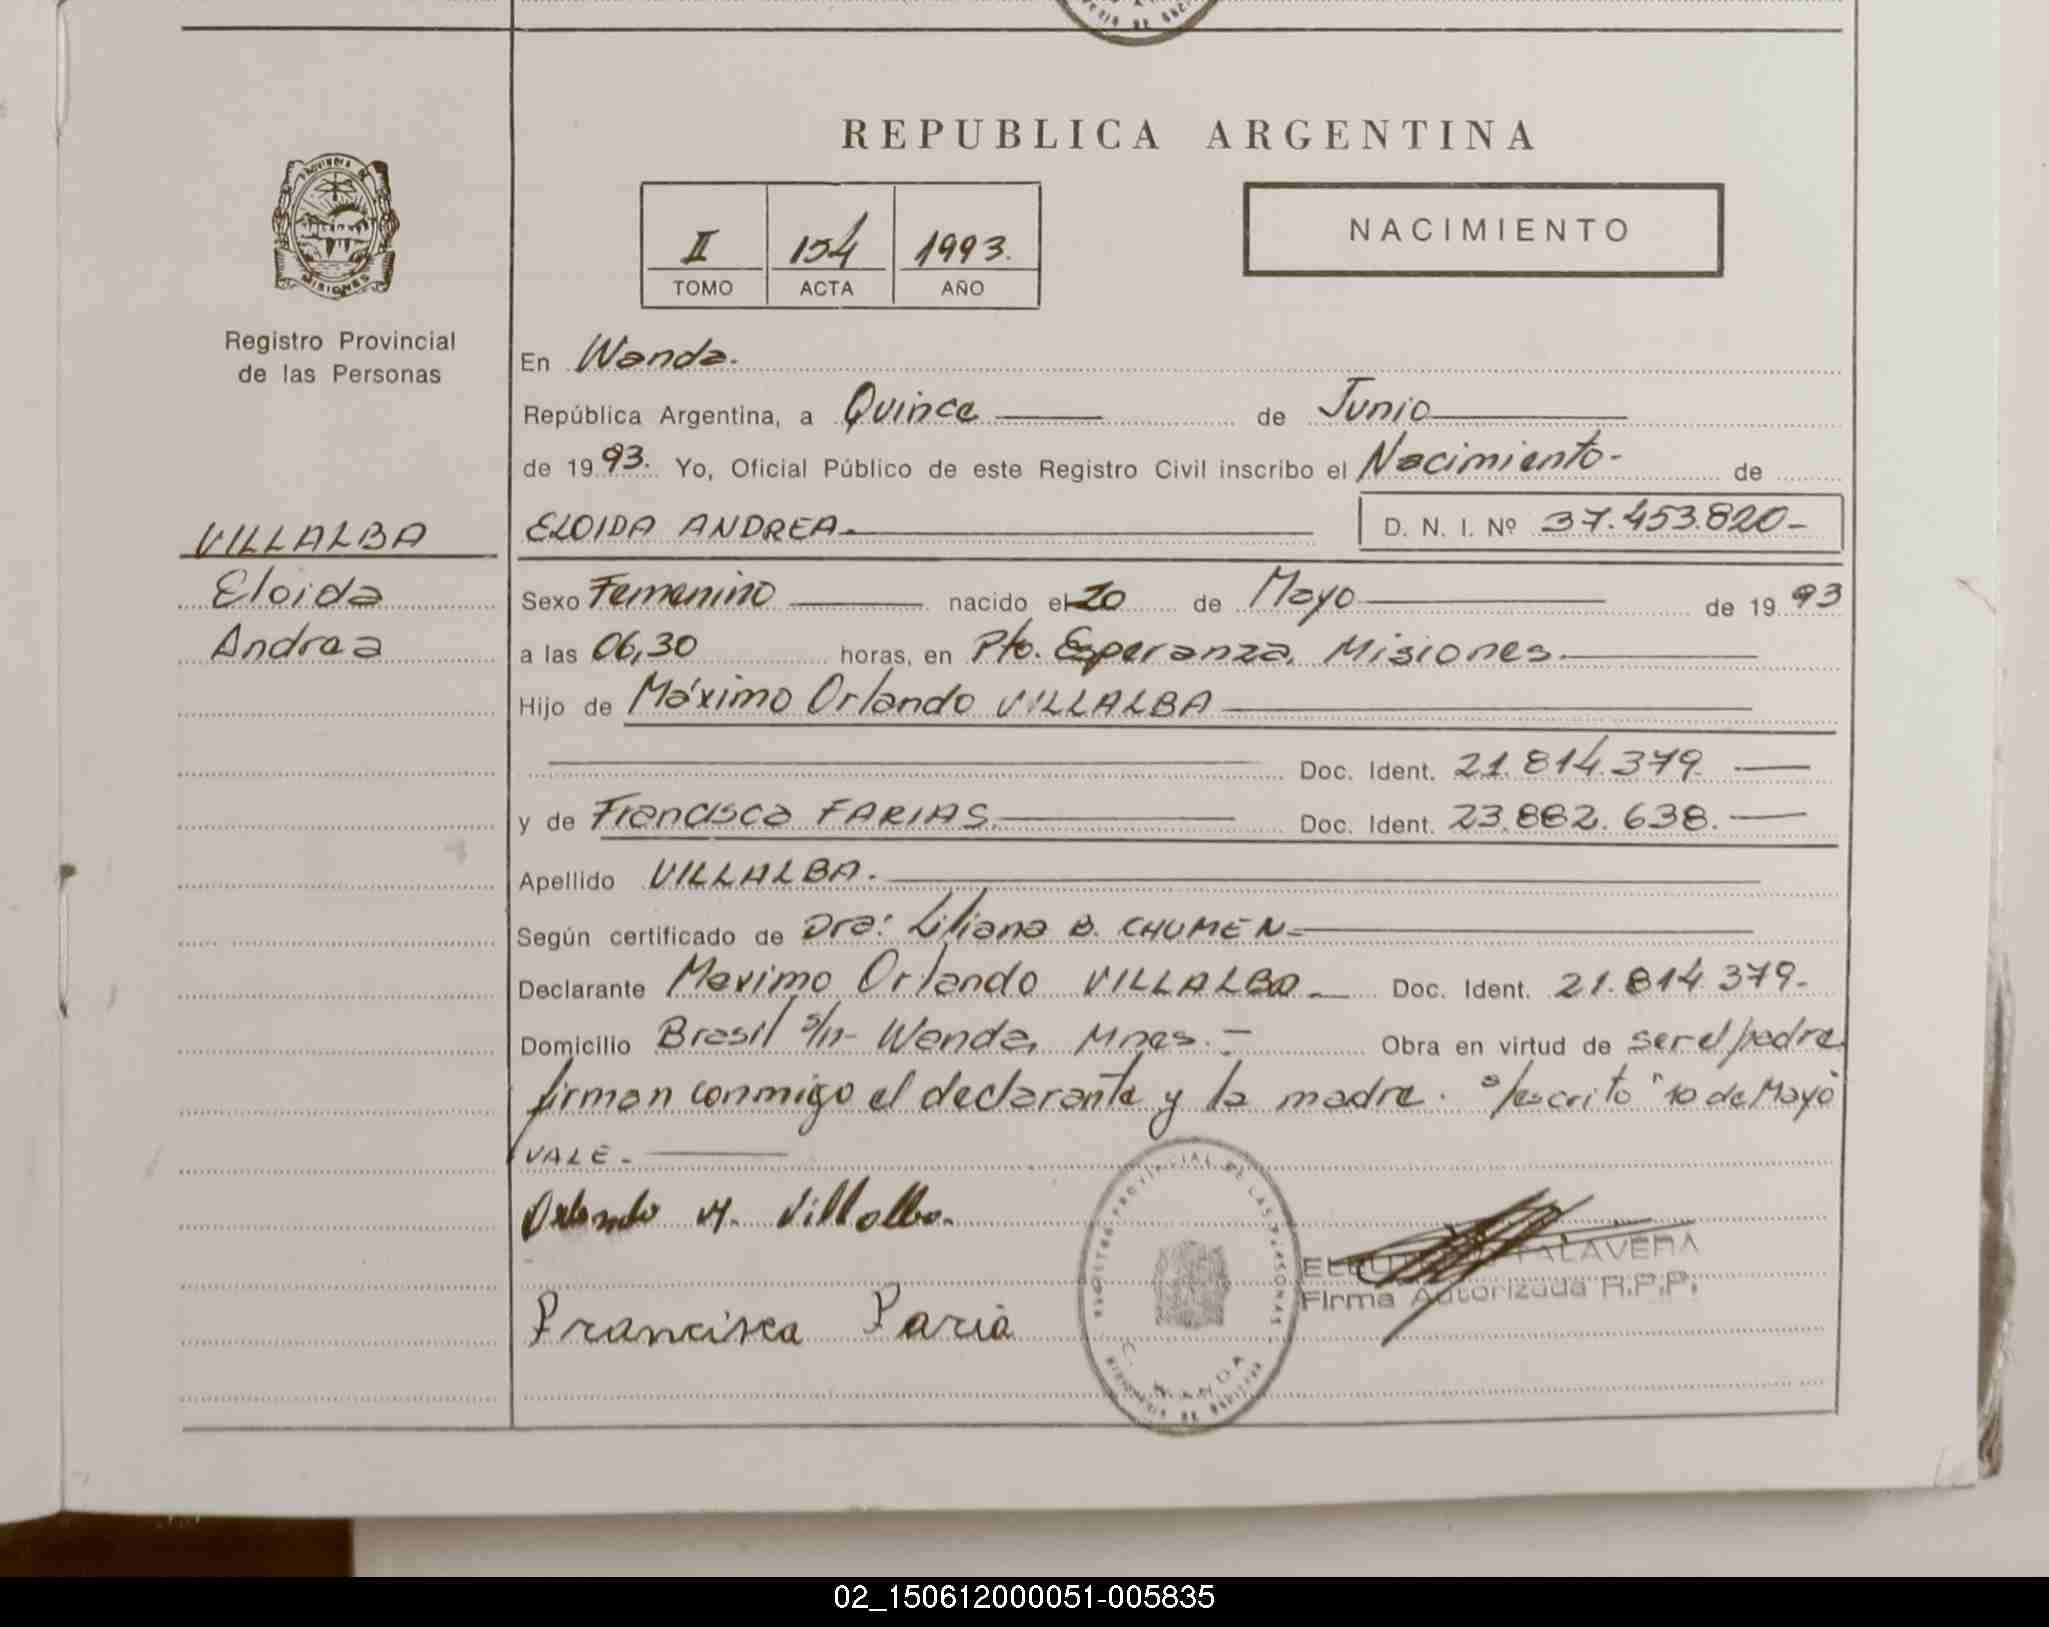 REPUBLICA ARGENTINA
PROVINCIA DE
MISIONES
Registro Provincial
de las Personas
II 154 1993.
TOMO ACTA AÑO
NACIMIENTO
VILLALBA
Eloida
Andrea
En Wanda.
República Argentina, a Quince de Junio
de 1993. Yo, Oficial Público de este Registro Civil inscribo el Nacimiento- de
ELOIDA ANDREA. D. N. I. Nº 37.453.820-
Sexo Femenino nacido el de Mayo de 1993
a las 06,30 horas, en Pto. Esperanza, Misiones.
Hijo de Máximo Orlando VILLALBA
Doc. Ident. 21.814.379.
y de Francisca FARIAS. Doc. Ident. 23.882.638.
Apellido VILLALBA.
Según certificado de Dra: Liliana B. CHUMEN.
Declarante Maximo Orlando VILLALBA. Doc. Ident. 21.814.379-
Domicilio Brasil s/n- Wanda, Mnes.- Obra en virtud de ser el padre
firman conmigo el declarante y la madre. s/escrito "10 de Mayo"
VALE.
Orlando M. Villalba.
Francisca Faria
REGISTRO PROVINCIAL DE LAS PERSONAS
WANDA
TALAVERA
Firma Autorizada R.P.P.
02_150612000051-005835